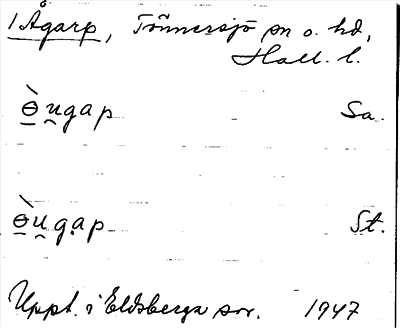 1 Ågarp, Tönnersjö sn o. hd,
Hall. l.
ɵ̠̀u̯gap Sa.
ɵ̠̀u̯gạp St.
Uppt. i Eldsberga snr. 1947